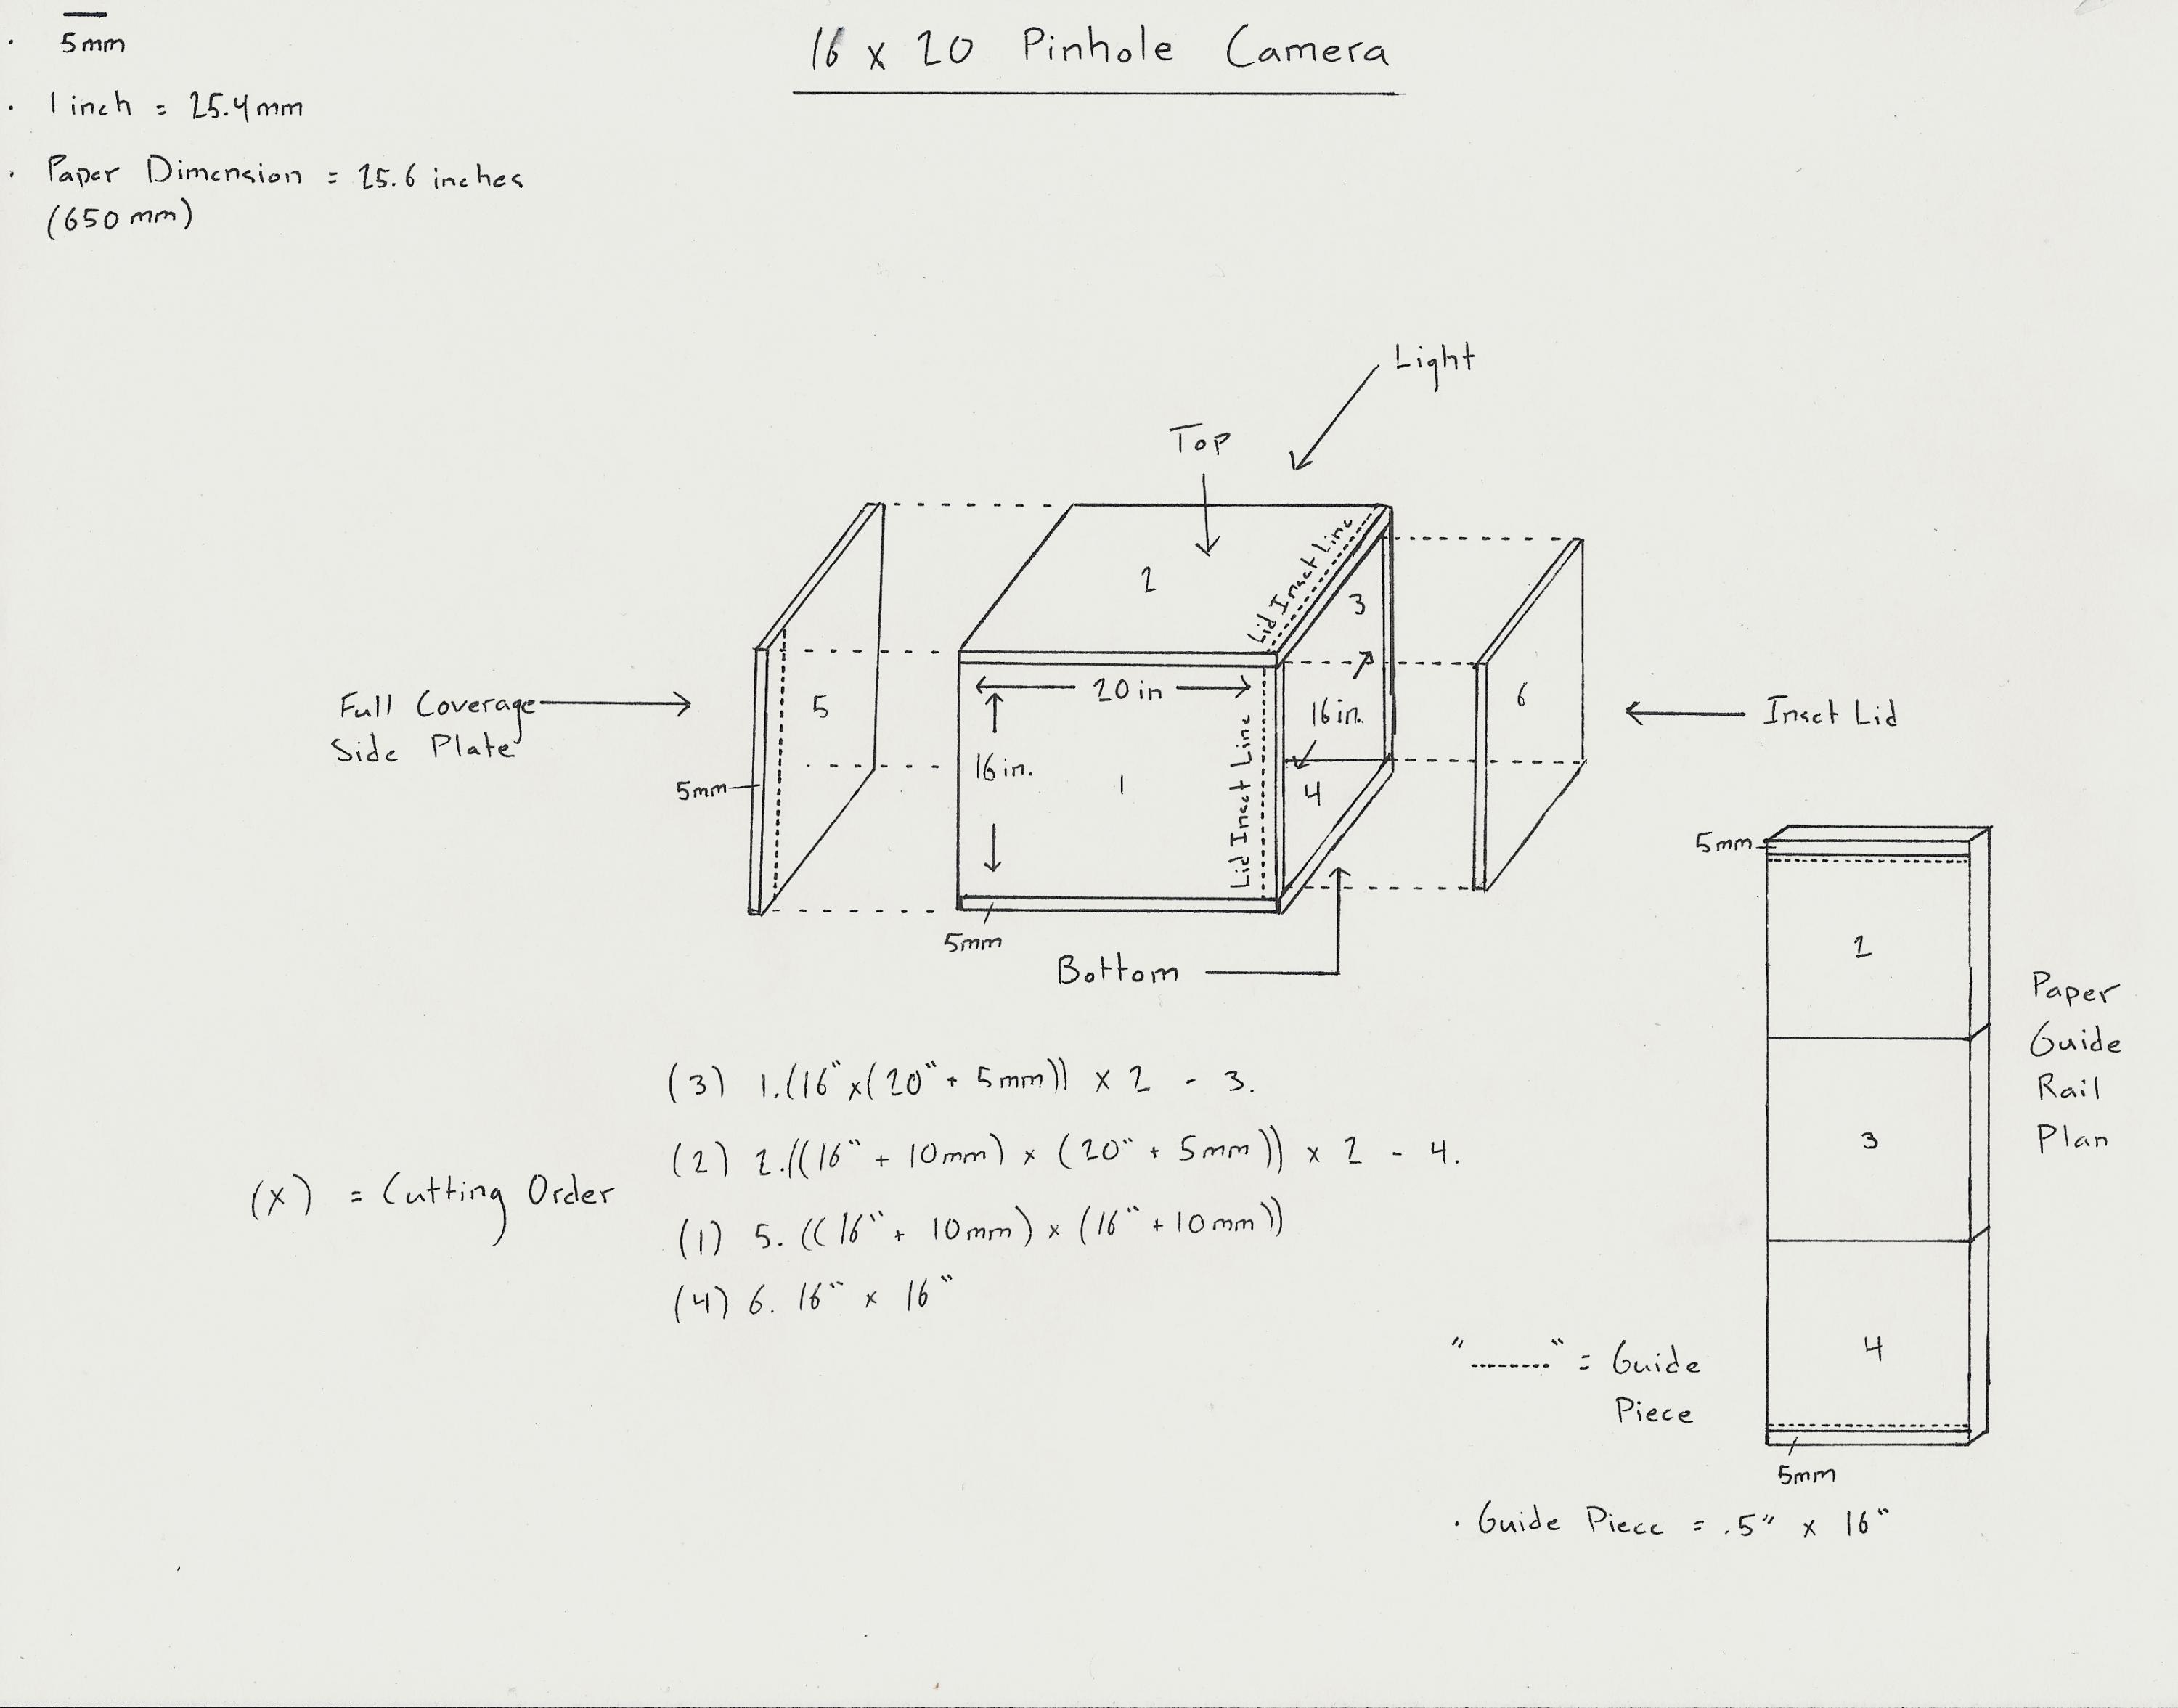 16 x 20 Pinhole Camera
· 5mm
· 1 inch = 25.4mm
· Paper Dimension = 25.6 inches
(650 mm)
Light
Top
2
Lid Inset Line
3
Full Coverage
Side Plate
5
5mm
20 in
16 in.
1
Lid Inset Line
16 in.
4
6
Inset Lid
5mm
Bottom
5mm
2
3
4
5mm
Paper
Guide
Rail
Plan
(X) = Cutting Order
(3) 1.(16" x (20" + 5mm)) x 2 - 3.
(2) 2.((16" + 10mm) x (20" + 5mm)) x 2 - 4.
(1) 5. ((16" + 10mm) x (16" + 10mm))
(4) 6. 16" x 16"
"--------" = Guide
Piece
· Guide Piece = .5" x 16"